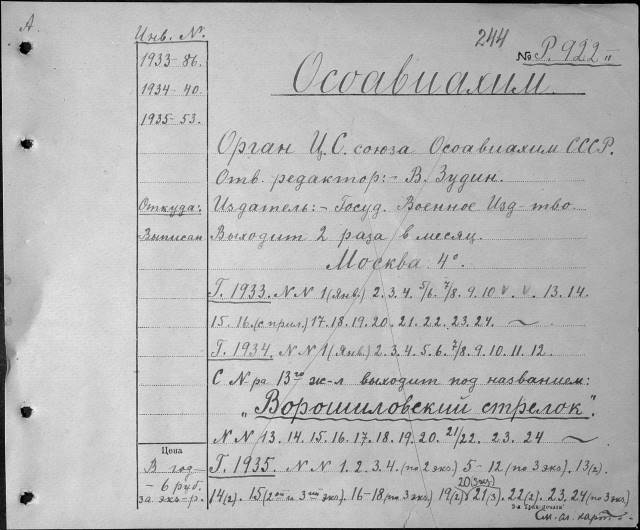 А.
Инв. N.
1933-86.
1934-40.
1935-53.
Откуда:
Выписан
Цена
В год
- 6 руб.
за экз-р.
244
No P. 922 II
Осоавиахим.
Орган Ц. С. союза Осоавиахим СССР.
Отв. редактор:- В. Зудин.
Издатель:- Госуд. Военное Изд-тво.
Выходит 2 раза в месяц.
Москва. 4°.
Г. 1933. N N 1 (янв) 2. 3. 4. 5/6. 7/8. 9. 10 v. v. 13. 14.
15. 16. (с прил.) 17. 18. 19. 20. 21. 22. 23. 24. ~
Г. 1934. N N 1 (янв) 2. 3. 4. 5. 6. 7/8. 9. 10. 11. 12.
С N ра 13го ж-л выходит под названием:
„Ворошиловский стрелок".
N N 13. 14. 15. 16. 17. 18. 19. 20. 21/22. 23. 24 ~
Г. 1935. N N 1. 2. 3. 4. (по 2 экз) 5-12 (по 3 экз). 13 (2).
20 (3 экз)
14 (2). 15 (2ой и 3ий экз). 16-18 (по 3 экз) 19 (2) 21 (3). 22 (2). 23, 24 (по 3 экз)
См. сл. карт.